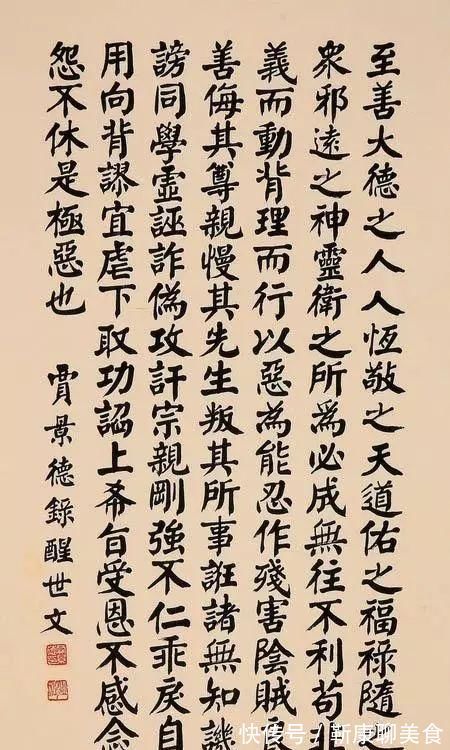 至善大德之人人恆敬之天道佑之福祿隨
衆邪遠之神靈衛之所爲必成無往不利苟
義而動背理而行以惡為能忍作殘害陰賊
善侮其尊親慢其先生叛其所事誑諸無知譏
謗同學虛誣詐偽攻訐宗親剛強不仁乖戾自
用向背謬宜虐下取功諂上希旨受恩不感念
怨不休是極惡也
賈景德錄醒世文
快传号/靳康聊美食